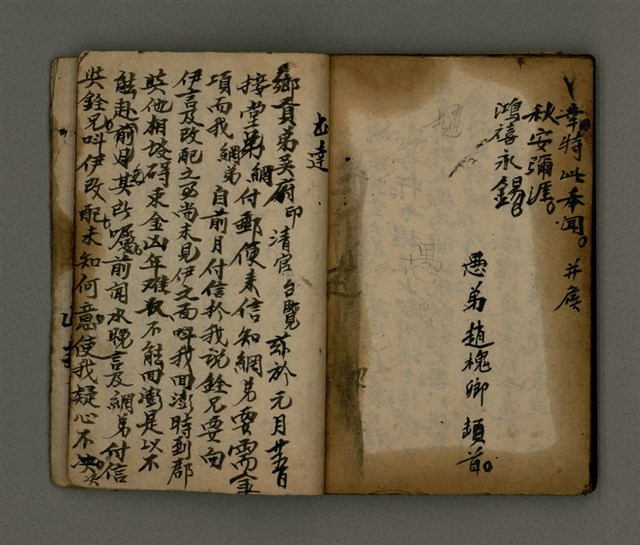 幸特此奉聞。 并矦
秋安彌湮。
鴻禧永錫。
愚弟趙槐卿 頓首。
台達
鄉貢弟吳府印清官台覽 茲於元月廿五日
接堂弟綢付郵便来信知綢弟要需金
項而我綢弟自前月付信於我說銓兄要向
伊言及改配之函尚未見伊之面叫我回澎時到郡
與他相坡碍東金凶年难敢不能回澎是以不
能赴前月其所囑前聞水晚言及綢弟付信
與銓兄叫伊改配未知何意使我疑心不决